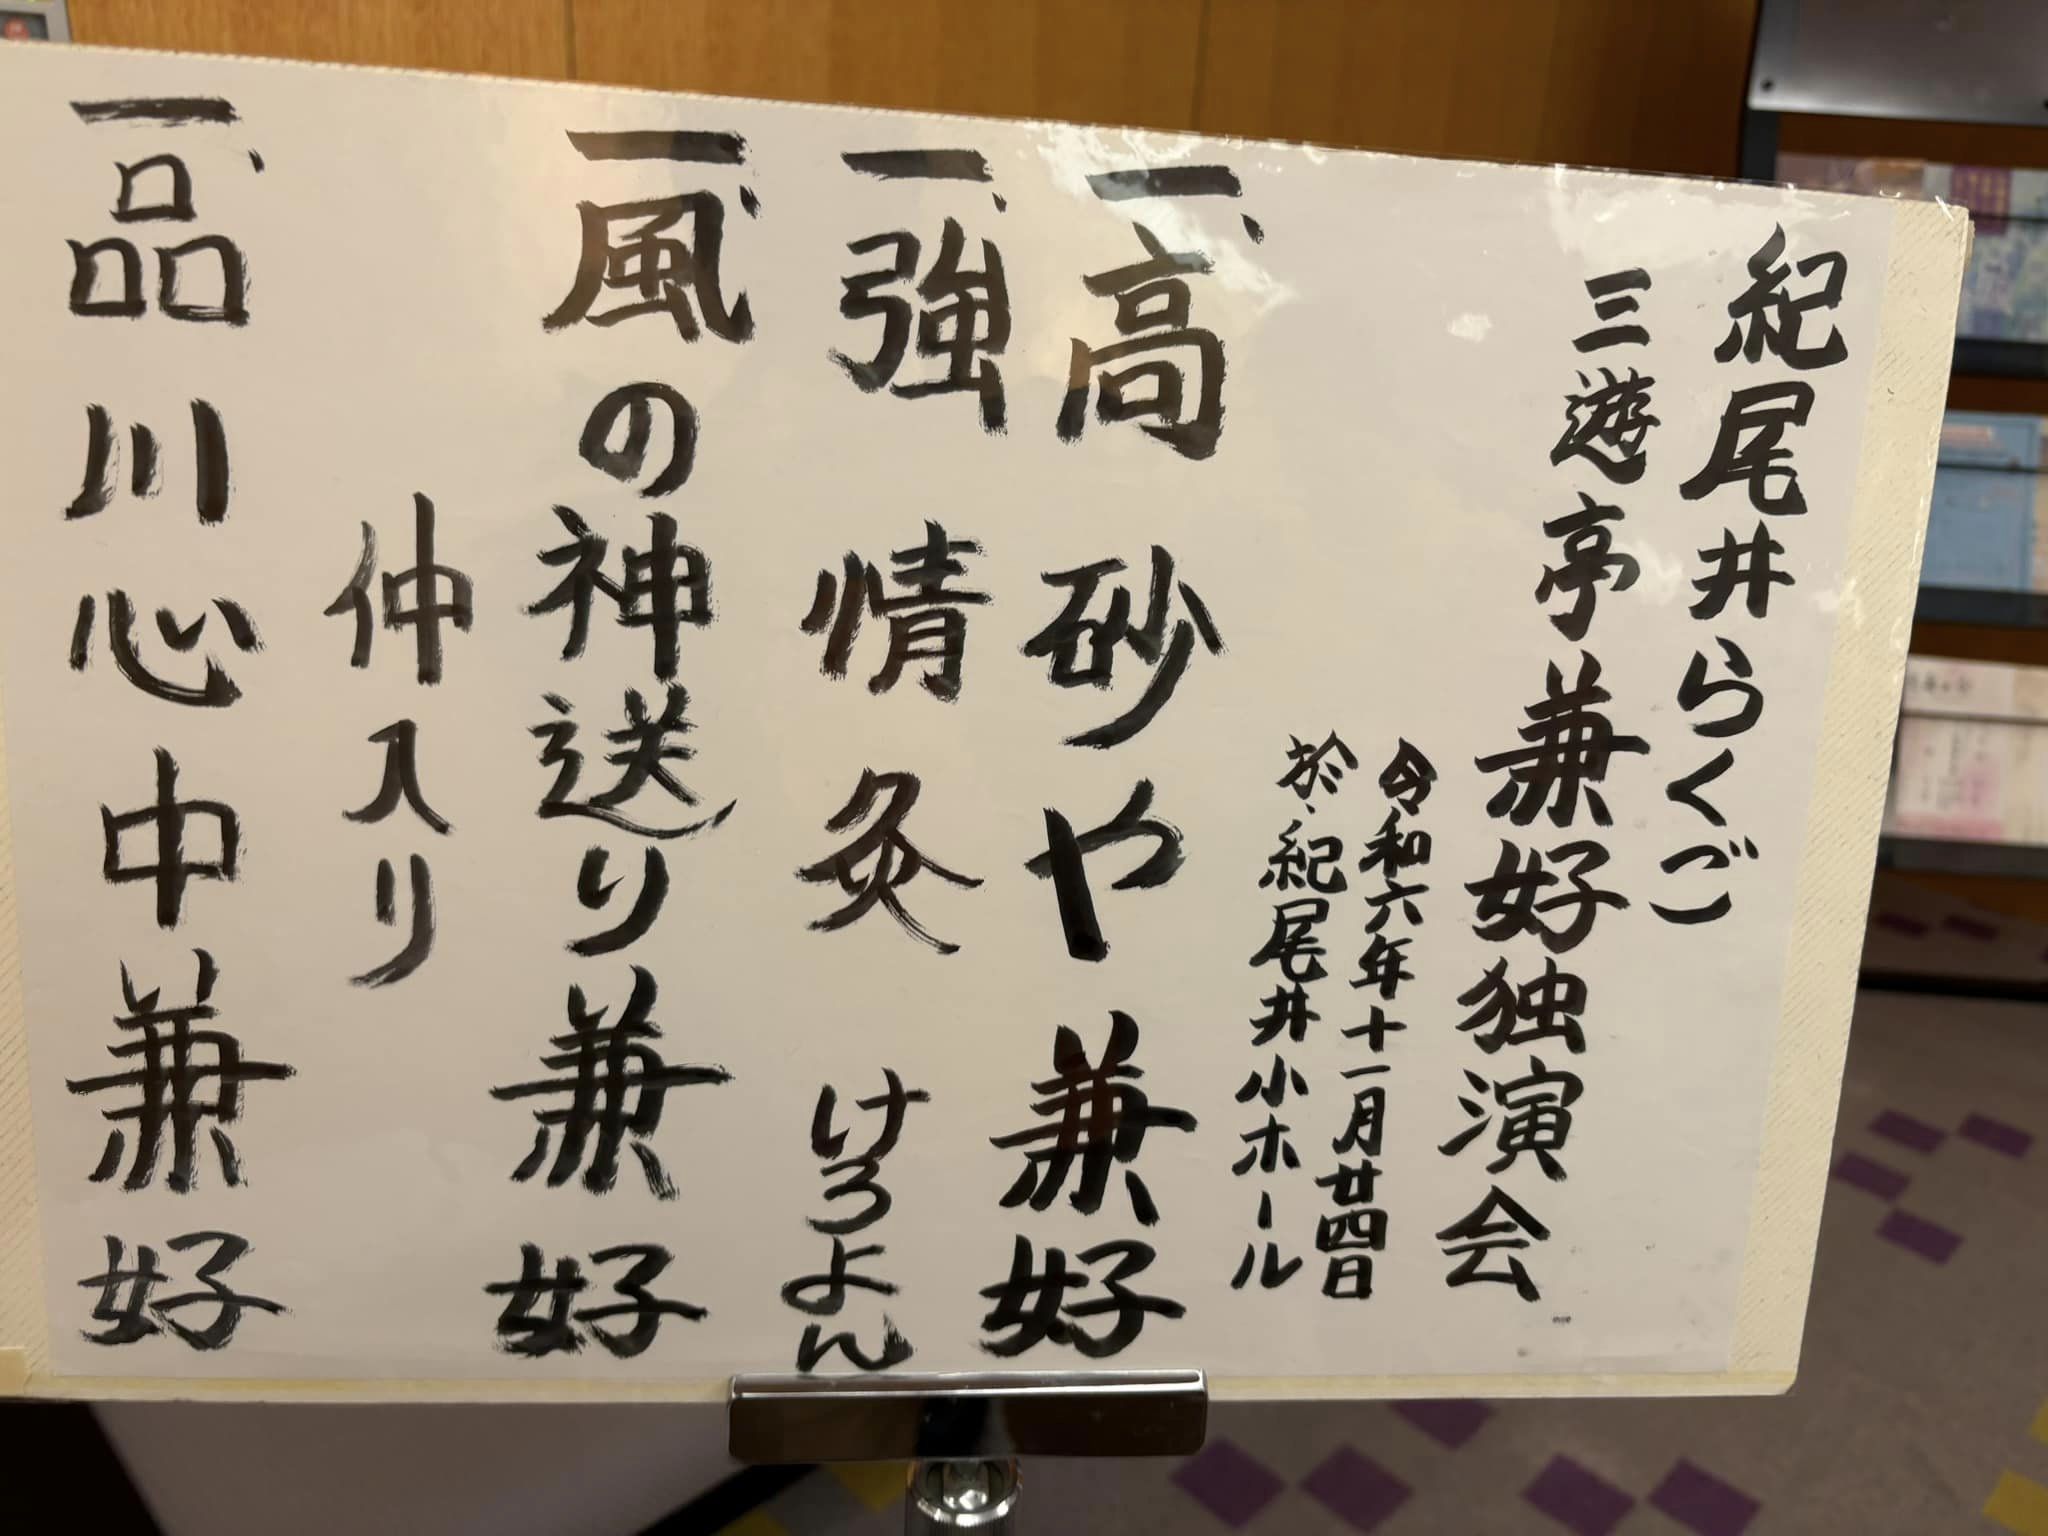 紀尾井らくご
三遊亭兼好独演会
令和六年十一月廿四日
於、紀尾井小ホール
一、高砂や 兼好
一、強情灸 けろよん
一、風の神送り 兼好
仲入り
一、品川心中 兼好